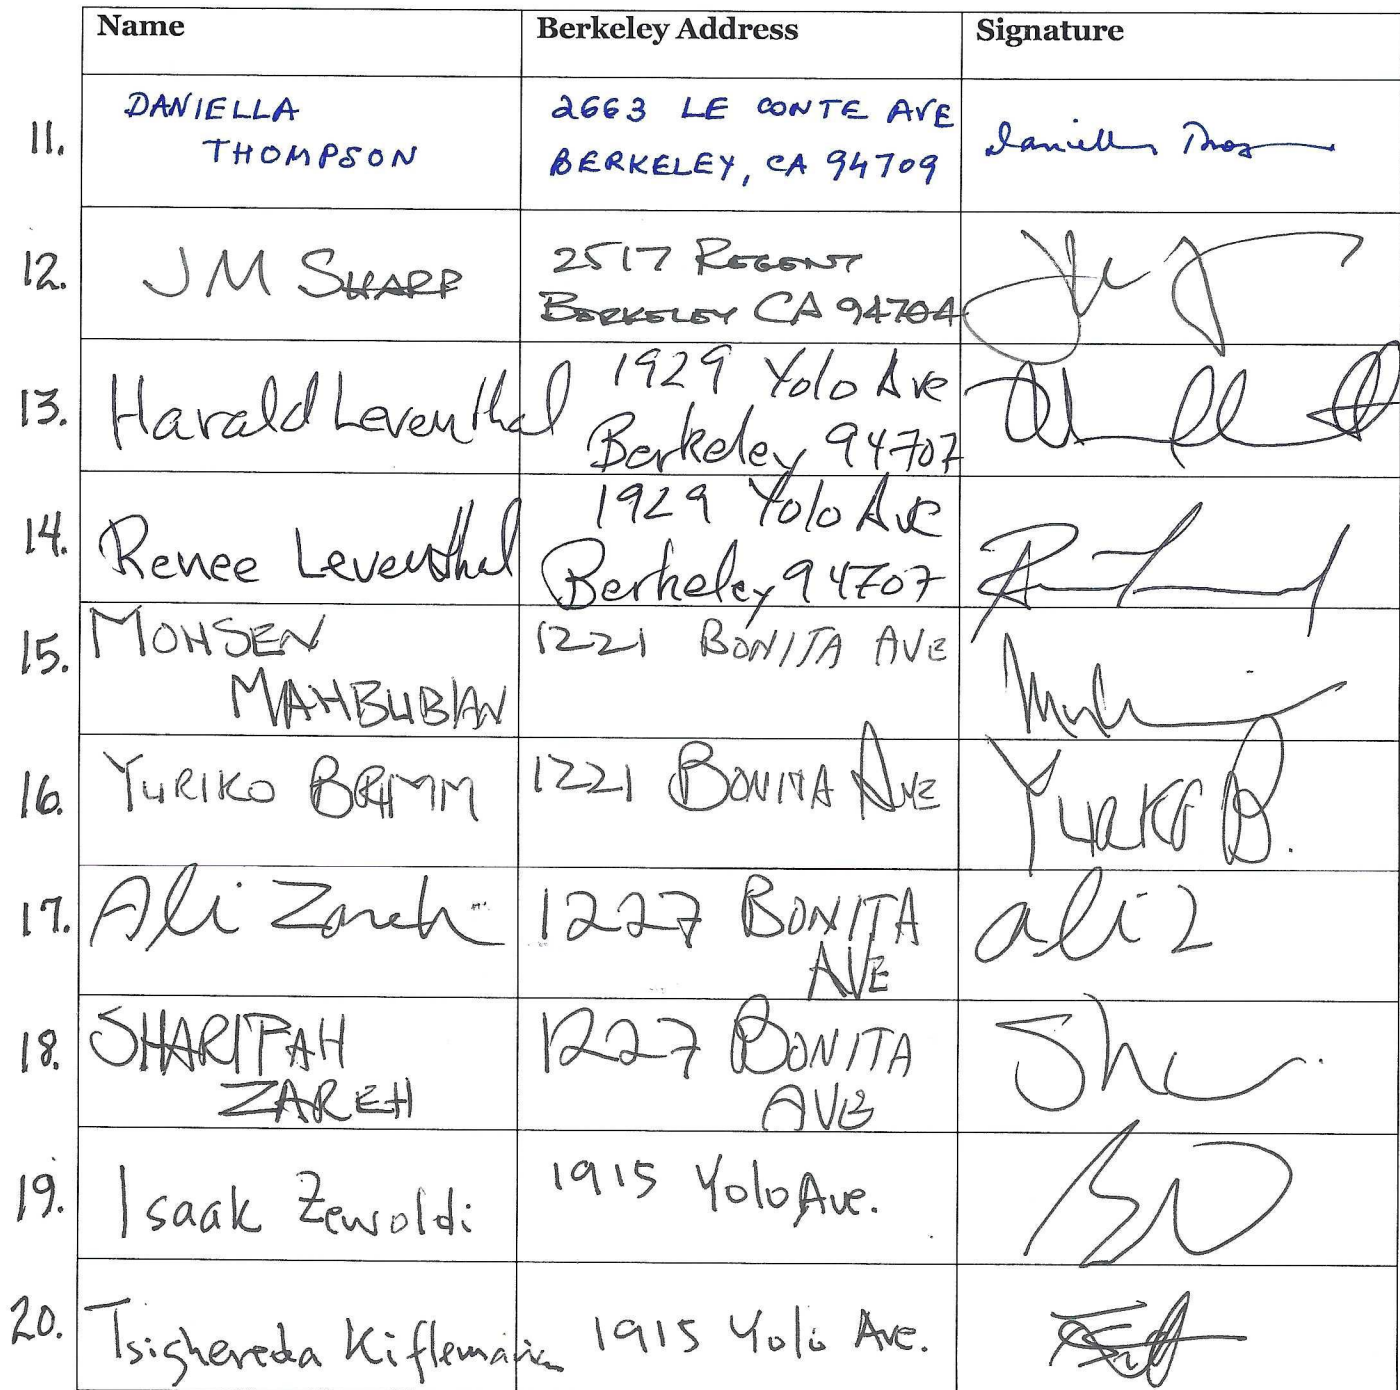 Name Berkeley Address Signature
11. DANIELLA 2663 LE CONTE AVE
THOMPSON BERKELEY, CA 94709
12. JM SHARP 2517 REGENT
BERKELEY CA 94704
13. Harald Leventhal 1929 Yolo Ave
Berkeley 94707
14. Renee Leventhal 1929 Yolo Ave
Berkeley 94707
15. MOHSEN 1221 BONITA AVE
MAHBUBIAN
16. YURIKO BRIMM 1221 BONITA AVE
17. Ali Zareh 1227 BONITA
AVE ali z
18. SHARIPAH 1227 BONITA
ZAREH AVE
19. Isaak Zewoldi 1915 Yolo Ave.
20. Tsighereda Kiflemariam 1915 Yolo Ave.